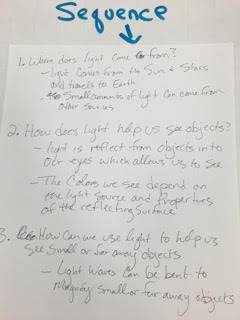 Sequence
1. Where does light come from?
- light comes from the Sun & Stars
and travels to Earth
- Small amounts of light can come from
other sources
2. How does light help us see objects?
- light is reflect from objects into
our eyes which allows us to see
- The Colors we see depend on
the light source and properties
of the reflecting surface
3. How Can we use light to help us
see small or far away objects
- Light waves can be bent to
magnify small or far away objects